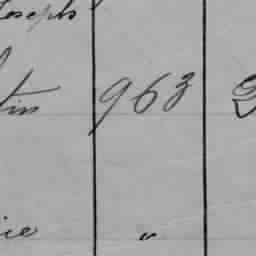 Joseph
tin 963
ice "